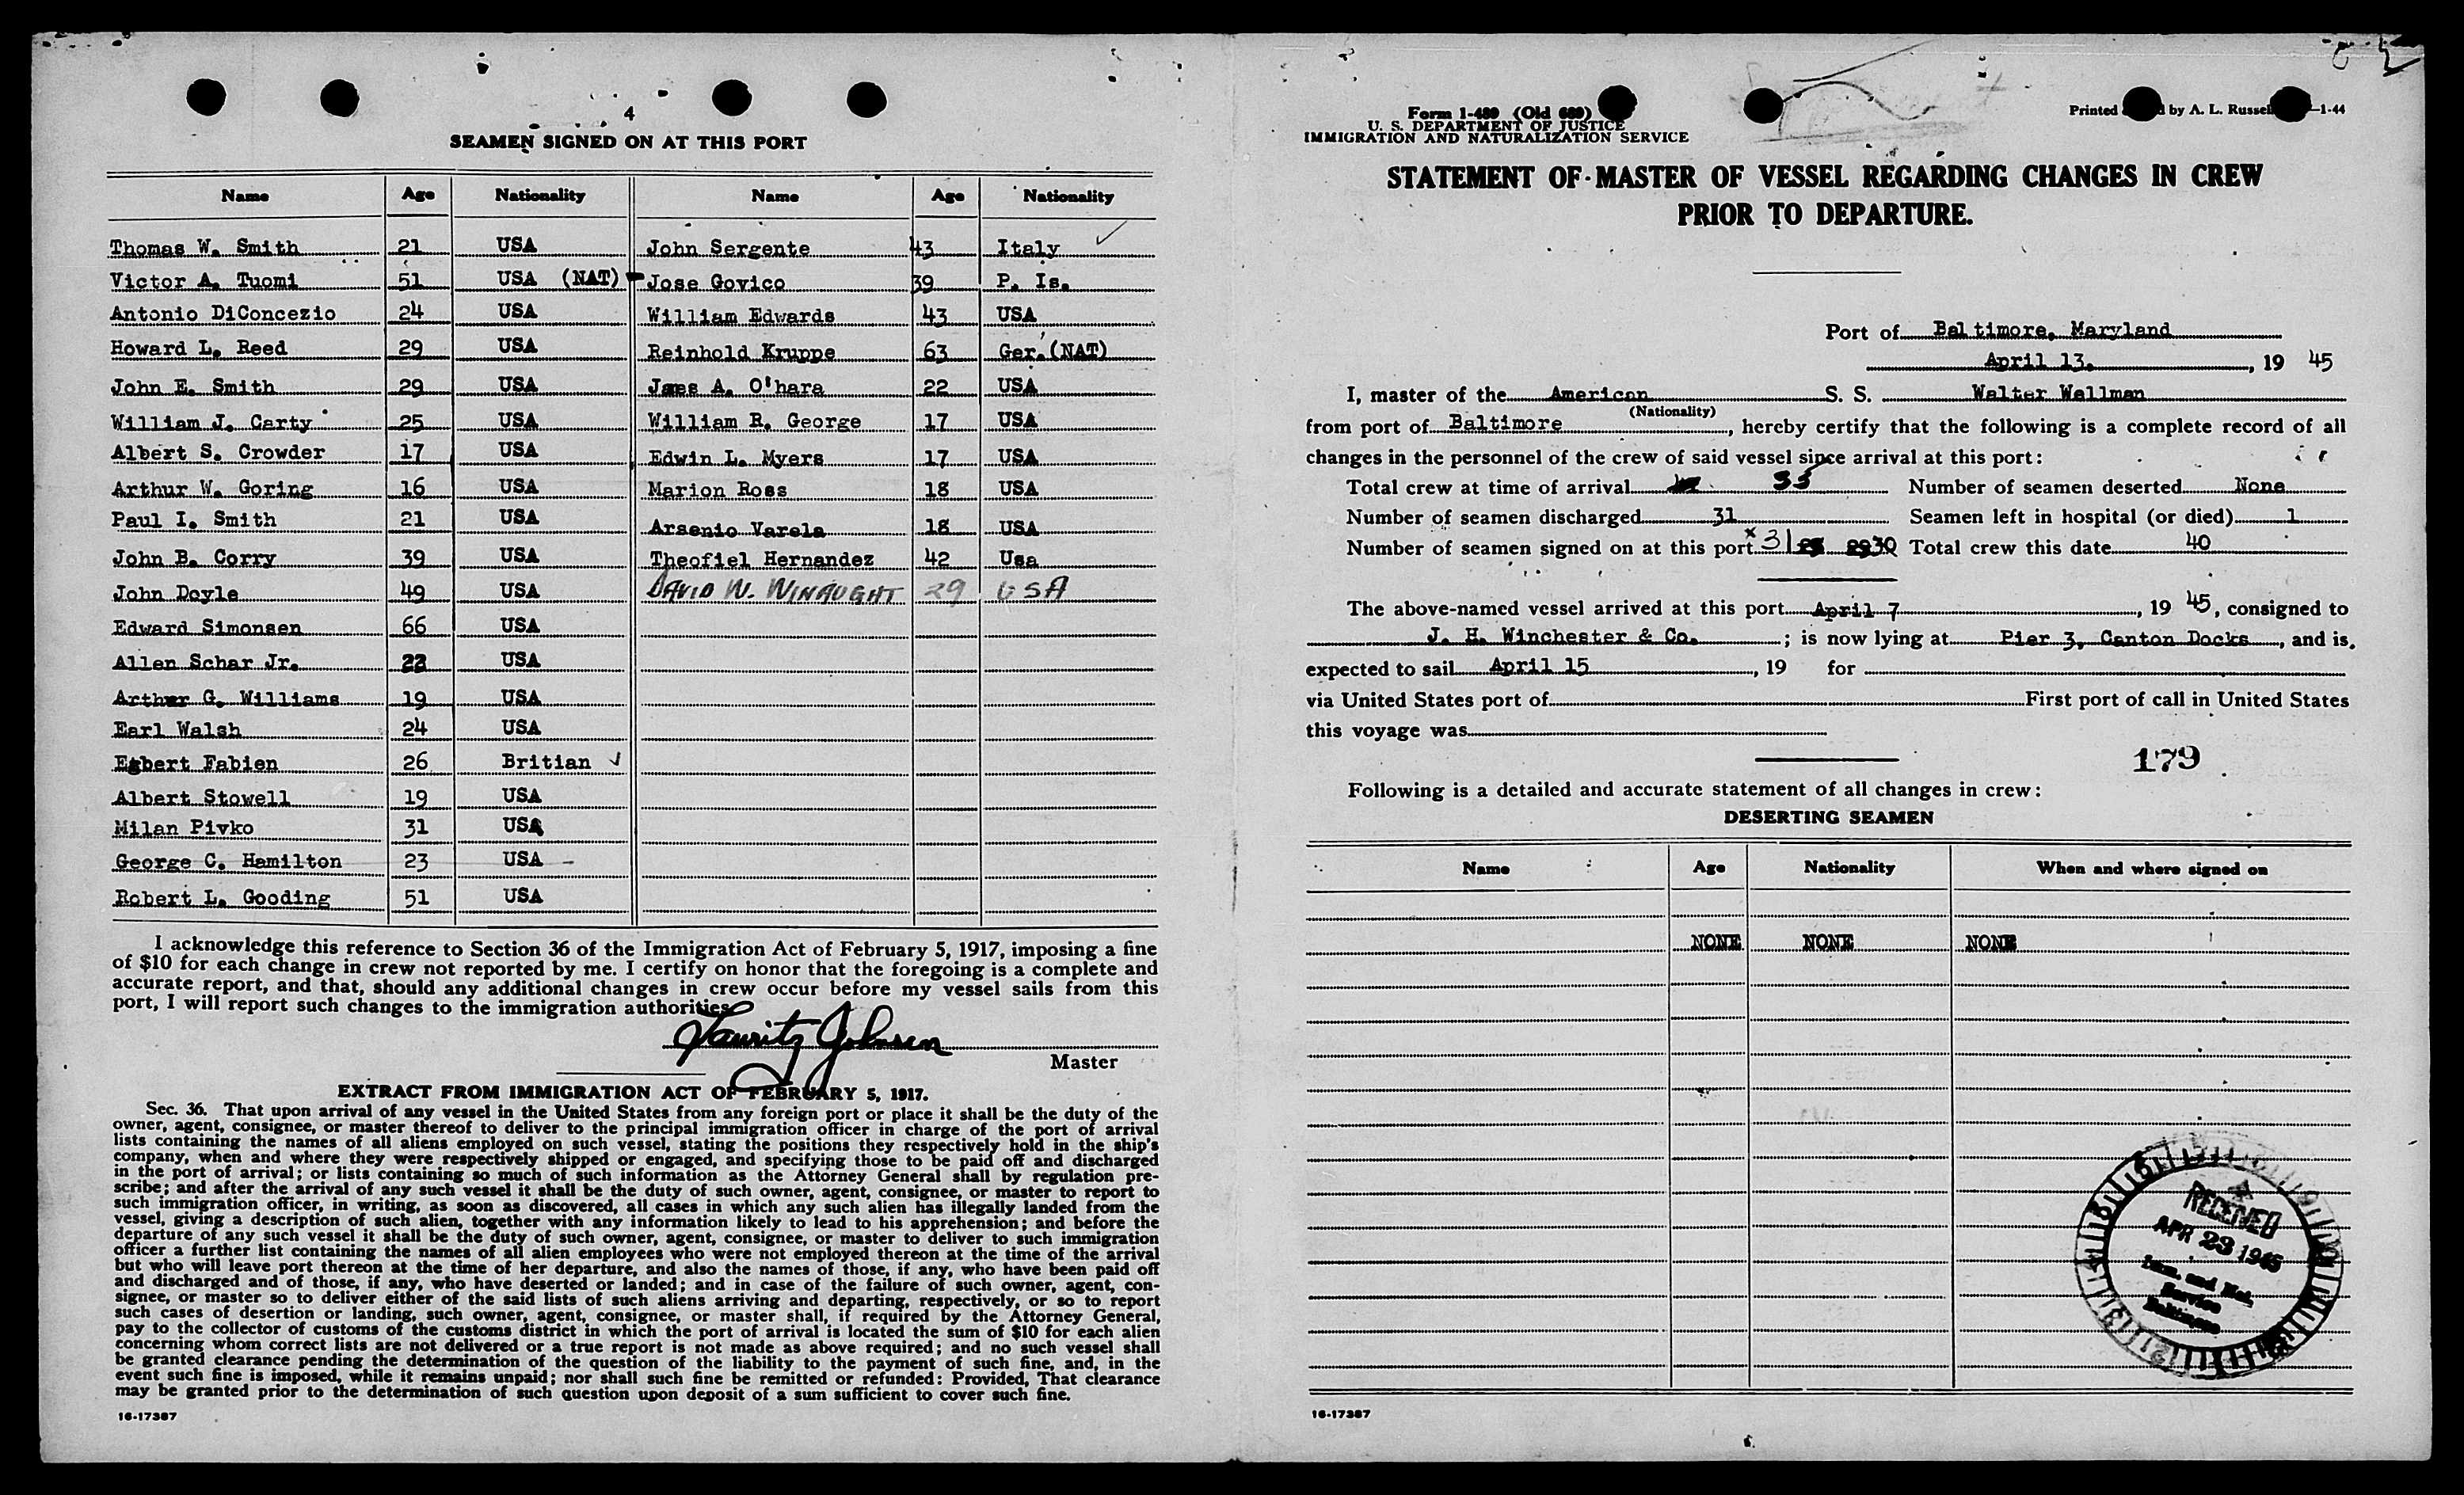 4
SEAMEN SIGNED ON AT THIS PORT
Name Age Nationality Name Age Nationality
Thomas W. Smith 21 USA John Sergente 43 Italy ✓
Victor A. Tuomi 51 USA (NAT) Jose Govico 39 P. Is.
Antonio DiConcezio 24 USA William Edwards 43 USA
Howard L. Reed 29 USA Reinhold Kruppe 63 Ger. (NAT)
John E. Smith 29 USA James A. O'hara 22 USA
William J. Carty 25 USA William R. George 17 USA
Albert S. Crowder 17 USA Edwin L. Myers 17 USA
Arthur W. Goring 16 USA Marion Ross 18 USA
Paul I. Smith 21 USA Arsenio Varela 18 USA
John B. Corry 39 USA Theofiel Hernandez 42 Usa
John Doyle 49 USA DAVID W. WINAUGHT 29 USA
Edward Simonsen 66 USA
Allen Schar Jr. 22 USA
Arthur G. Williams 19 USA
Earl Walsh 24 USA
Egbert Fabien 26 Britian ✓
Albert Stowell 19 USA
Milan Pivko 31 USA
George C. Hamilton 23 USA
Robert L. Gooding 51 USA
I acknowledge this reference to Section 36 of the Immigration Act of February 5, 1917, imposing a fine
of $10 for each change in crew not reported by me. I certify on honor that the foregoing is a complete and
accurate report, and that, should any additional changes in crew occur before my vessel sails from this
port, I will report such changes to the immigration authorities.
Lauritz Johnsen
Master
EXTRACT FROM IMMIGRATION ACT OF FEBRUARY 5, 1917.
Sec. 36. That upon arrival of any vessel in the United States from any foreign port or place it shall be the duty of the
owner, agent, consignee, or master thereof to deliver to the principal immigration officer in charge of the port of arrival
lists containing the names of all aliens employed on such vessel, stating the positions they respectively hold in the ship's
company, when and where they were respectively shipped or engaged, and specifying those to be paid off and discharged
in the port of arrival; or lists containing so much of such information as the Attorney General shall by regulation pre-
scribe; and after the arrival of any such vessel it shall be the duty of such owner, agent, consignee, or master to report to
such immigration officer, in writing, as soon as discovered, all cases in which any such alien has illegally landed from the
vessel, giving a description of such alien, together with any information likely to lead to his apprehension; and before the
departure of any such vessel it shall be the duty of such owner, agent, consignee, or master to deliver to such immigration
officer a further list containing the names of all alien employees who were not employed thereon at the time of the arrival
but who will leave port thereon at the time of her departure, and also the names of those, if any, who have been paid off
and discharged and of those, if any, who have deserted or landed; and in case of the failure of such owner, agent, con-
signee, or master so to deliver either of the said lists of such aliens arriving and departing, respectively, or so to report
such cases of desertion or landing, such owner, agent, consignee, or master shall, if required by the Attorney General,
pay to the collector of customs of the customs district in which the port of arrival is located the sum of $10 for each alien
concerning whom correct lists are not delivered or a true report is not made as above required; and no such vessel shall
be granted clearance pending the determination of the question of the liability to the payment of such fine, and, in the
event such fine is imposed, while it remains unpaid; nor shall such fine be remitted or refunded: Provided, That clearance
may be granted prior to the determination of such question upon deposit of a sum sufficient to cover such fine.
16-17387
Form I-489 (Old 689)
U. S. DEPARTMENT OF JUSTICE
IMMIGRATION AND NATURALIZATION SERVICE
Printed by A. L. Russell 1-44
STATEMENT OF MASTER OF VESSEL REGARDING CHANGES IN CREW
PRIOR TO DEPARTURE.
Port of Baltimore, Maryland
April 13, 19 45
I, master of the American S. S. Walter Wellman
(Nationality)
from port of Baltimore, hereby certify that the following is a complete record of all
changes in the personnel of the crew of said vessel since arrival at this port:
Total crew at time of arrival 33 Number of seamen deserted None
Number of seamen discharged 31 Seamen left in hospital (or died) 1
Number of seamen signed on at this port x 31 30 Total crew this date 40
The above-named vessel arrived at this port April 7, 19 45, consigned to
J. H. Winchester & Co. ; is now lying at Pier 3, Canton Docks, and is
expected to sail April 15, 19 for
via United States port of First port of call in United States
this voyage was
179
Following is a detailed and accurate statement of all changes in crew:
DESERTING SEAMEN
Name Age Nationality When and where signed on
NONE NONE NONE
RECEIVED
APR 23 1945
Imm. and Nat.
Service
Baltimore
16-17387